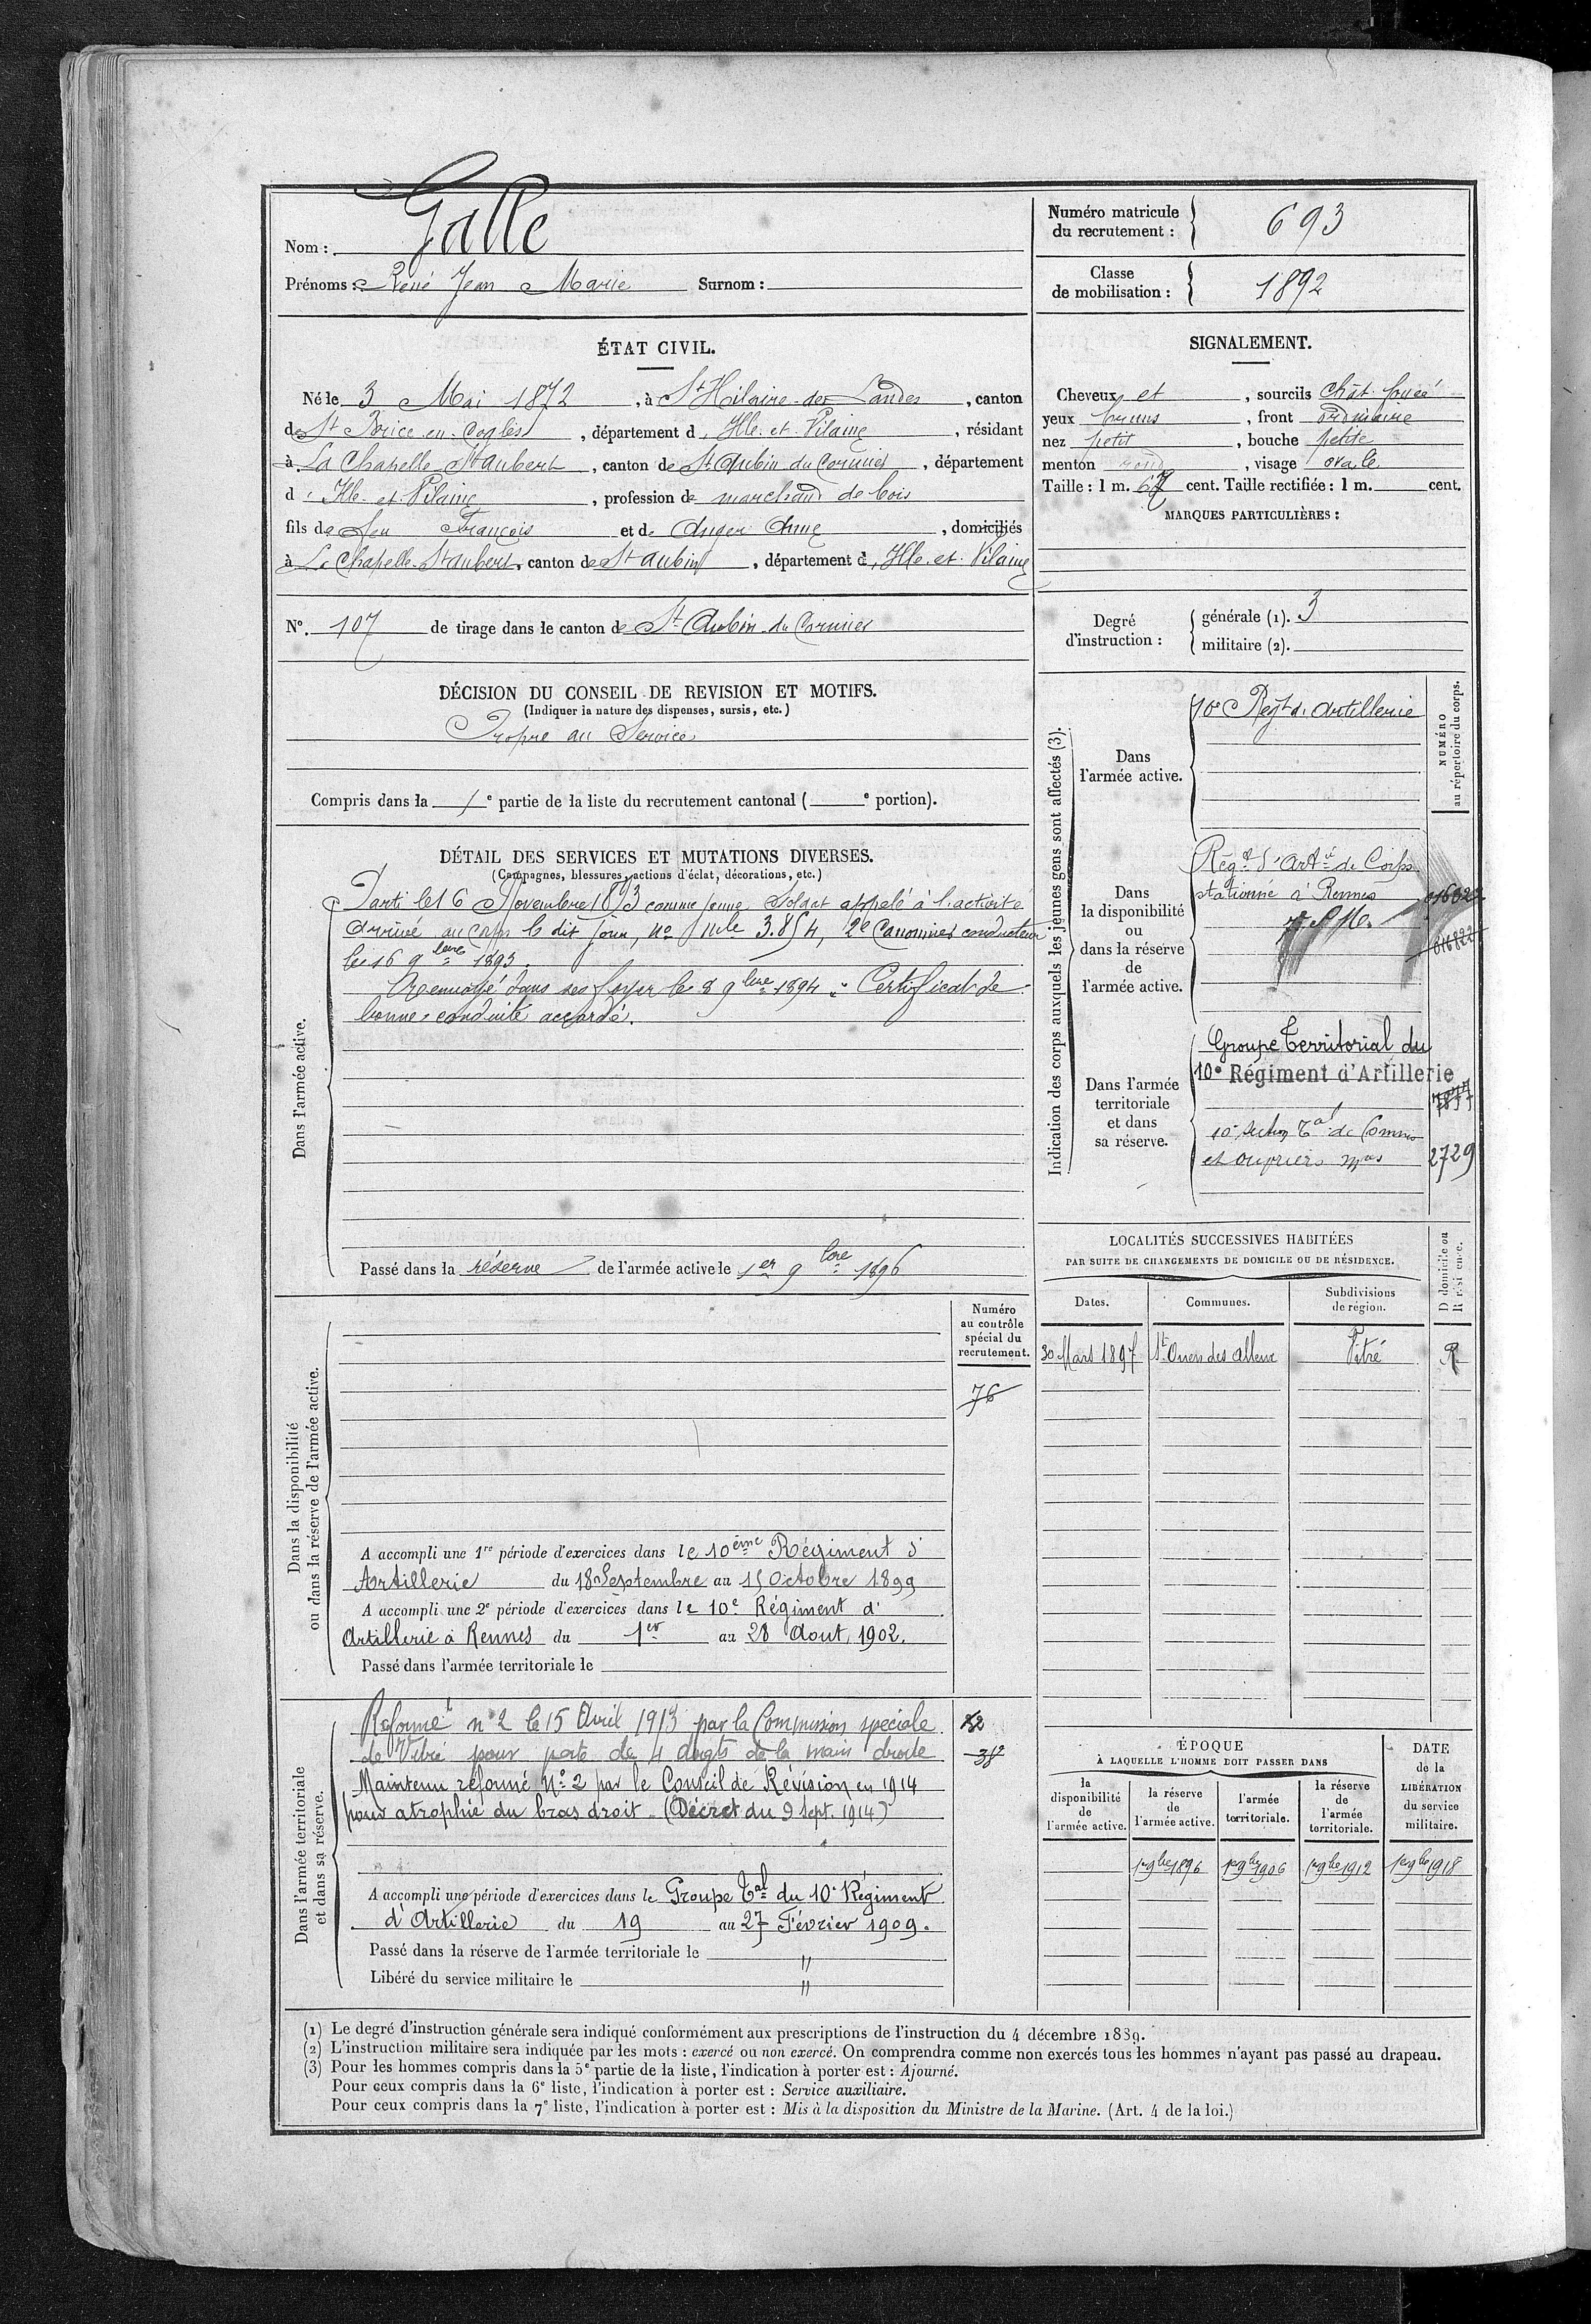 Nom : Galle
Prénoms : René Jean Marie Surnom :
Numéro matricule du recrutement : 693
Classe de mobilisation : 1892
ÉTAT CIVIL.
Né le 3 Mai 1872, à St Hilaire des Landes, canton
de St Brice en Cogles, département d'Ille et Vilaine, résidant
à La Chapelle St Aubert, canton de St Aubin du Cormier, département
d'Ille et Vilaine, profession de marchand de bois
fils de feu François et de Anger Anne, domiciliés
à La Chapelle St Aubert, canton de St Aubin, département d'Ille et Vilaine
SIGNALEMENT.
Cheveux et, sourcils chât. foncé
yeux bruns, front ordinaire
nez petit, bouche petite
menton rond, visage ovale
Taille : 1 m. 67 cent. Taille rectifiée : 1 m. cent.
MARQUES PARTICULIÈRES :
N°. 107 de tirage dans le canton de St Aubin du Cormier
Degré d'instruction : générale (1). 3
militaire (2).
DÉCISION DU CONSEIL DE REVISION ET MOTIFS.
(Indiquer la nature des dispenses, sursis, etc.)
Propre au Service
Compris dans la 1e partie de la liste du recrutement cantonal ( e portion).
DÉTAIL DES SERVICES ET MUTATIONS DIVERSES.
(Campagnes, blessures, actions d'éclat, décorations, etc.)
Dans l'armée active.
Parti le 16 Novembre 1893 comme jeune Soldat appelé à l'activité
Arrivé au corps le dit jour, no mle 3.854, 2e Canonnier conducteur
le 16 9bre 1893.
Renvoyé dans ses foyers le 8 9bre 1894. Certificat de
bonne conduite accordé.
Passé dans la réserve de l'armée active le 1er 9bre 1896
Indication des corps auxquels les jeunes gens sont affectés (3).
NUMÉRO au répertoire du corps.
Dans l'armée active.
10e Regt d'Artillerie
Dans la disponibilité ou dans la réserve de l'armée active.
Régt d'Artie de Corps
stationné à Rennes
016822
Dans l'armée territoriale et dans sa réserve.
Groupe Territorial du
10e Régiment d'Artillerie
7877
10e Section Tale de Commis
et ouvriers mres 2729
LOCALITÉS SUCCESSIVES HABITÉES
PAR SUITE DE CHANGEMENTS DE DOMICILE OU DE RÉSIDENCE.
Dates. Communes. Subdivisions de région. D domicile ou R résidence.
30 Mars 1897 St Ouen des Alleux Vitré R
Dans la disponibilité ou dans la réserve de l'armée active.
Numéro au contrôle spécial du recrutement.
76
A accompli une 1re période d'exercices dans le 10ème Régiment d'
Artillerie du 18 Septembre au 15 Octobre 1899
A accompli une 2e période d'exercices dans le 10e Régiment d'
Artillerie à Rennes du 1er au 28 Aout 1902.
Passé dans l'armée territoriale le
Dans l'armée territoriale et dans sa réserve.
Réformé n° 2 le 15 Avril 1913 par la Commission spéciale
de Vitré pour perte de 4 doigts de la main droite
Maintenu réformé No 2 par le Conseil de Révision en 1914
pour atrophie du bras droit. (Décret du 9 Sept. 1914)
A accompli une période d'exercices dans le Groupe Tal du 10e Régiment
d'Artillerie du 19 au 27 Février 1909.
Passé dans la réserve de l'armée territoriale le "
Libéré du service militaire le "
ÉPOQUE
À LAQUELLE L'HOMME DOIT PASSER DANS
la disponibilité de l'armée active. la réserve de l'armée active. l'armée territoriale. la réserve de l'armée territoriale. DATE de la LIBÉRATION du service militaire.
1er 9bre 1896 1er 9bre 1906 1er 9bre 1912 1er 9bre 1918
(1) Le degré d'instruction générale sera indiqué conformément aux prescriptions de l'instruction du 4 décembre 1889.
(2) L'instruction militaire sera indiquée par les mots : exercé ou non exercé. On comprendra comme non exercés tous les hommes n'ayant pas passé au drapeau.
(3) Pour les hommes compris dans la 5e partie de la liste, l'indication à porter est : Ajourné.
Pour ceux compris dans la 6e liste, l'indication à porter est : Service auxiliaire.
Pour ceux compris dans la 7e liste, l'indication à porter est : Mis à la disposition du Ministre de la Marine. (Art. 4 de la loi.)